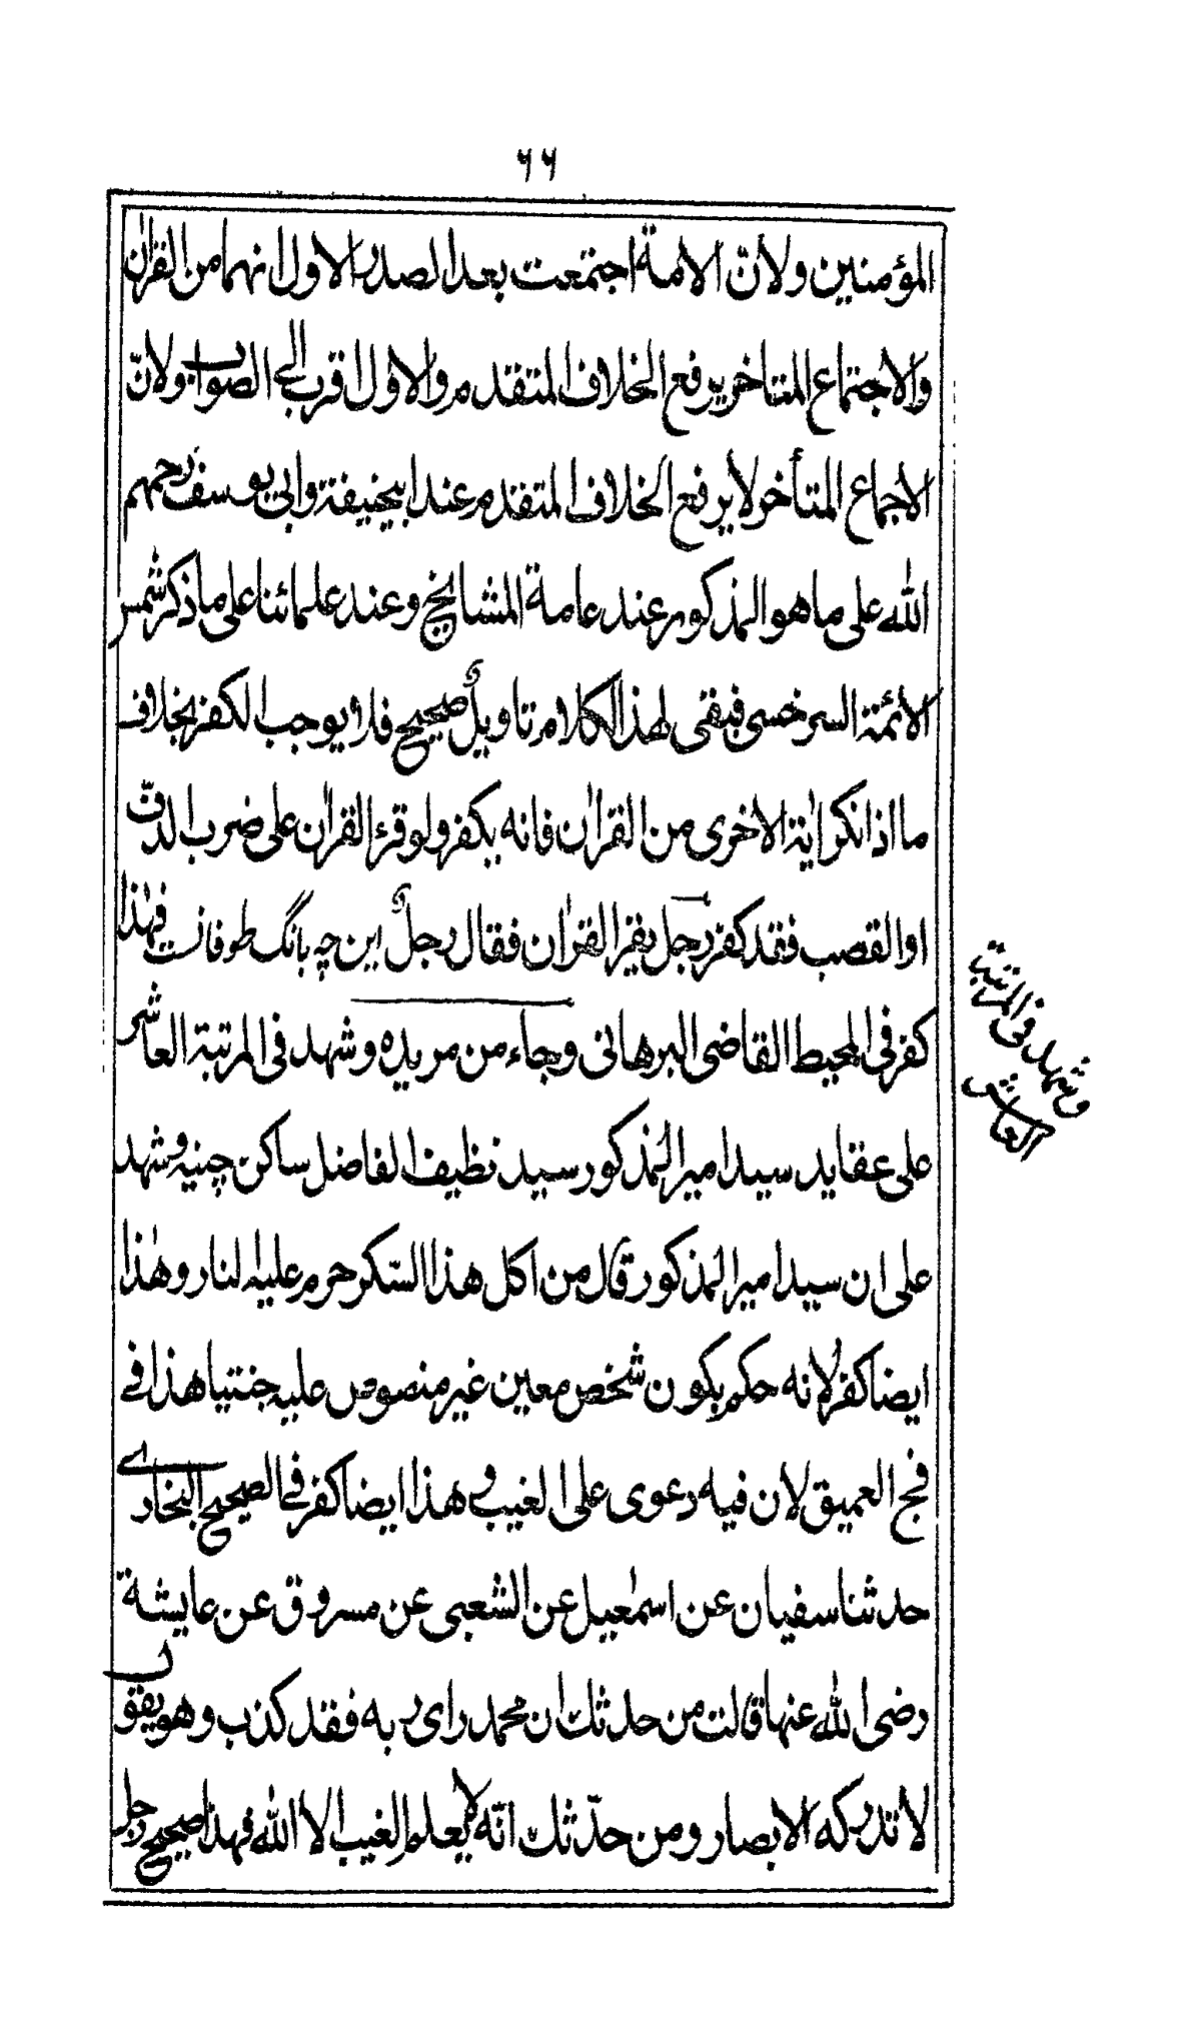 ٦٦
المؤمنين ولانّ الامة اجتمعت بعد الصدر الاول انهما من القران
والاجتماع المتاخر يرفع الخلاف المتقدم والاول اقرب الى الصواب ولانّ
الاجماع المتأخر لا يرفع الخلاف المتقدم عند ابيحنيفة وابي يوسف رحمهم
الله على ما هو المذكور عند عامة المشايخ وعند علمائنا على ما ذكر شمس
الائمة السرخسى فبقى لهذا الكلام تاويلٌ صحيح فلا يوجب الكفر بخلاف
ما اذا انكر اية الاخرى من القرآن فانه يكفر ولو قرء القرآن على ضرب الدفّ
او القصب فقد كفر رجل يقرا القرآن فقال رجلٌ اين چه بانگ طوفانست فهذا
كفر فى المحيط القاضى البرهانى وجاء من مريده وشهد فى المرتبة العاشر
على عقايد سيد امير المذكور سيد نظيف الفاضل ساكن چينه وشهد
على ان سيد امير المذكور قال من اكل هذا السّكر حرم عليه النار وهذا
ايضا كفر لانه حكم بكون شخص معين غير منصوص عليه جنتيا هذا فى
فج العميق لان فيه دعوى على الغيب و هذا ايضا كفر فى الصحيح البخارى
حدثنا سفيان عن اسمعيل عن الشعبى عن مسروق عن عايشة
رضى الله عنها قالت من حدثك ان محمد راى ربه فقد كذب وهو يقول
لا تدركه الابصار ومن حدّثك انّه لا يعلم الغيب الا الله فهذا صحيح رجل
وشهد فى المرتبة
العاشر